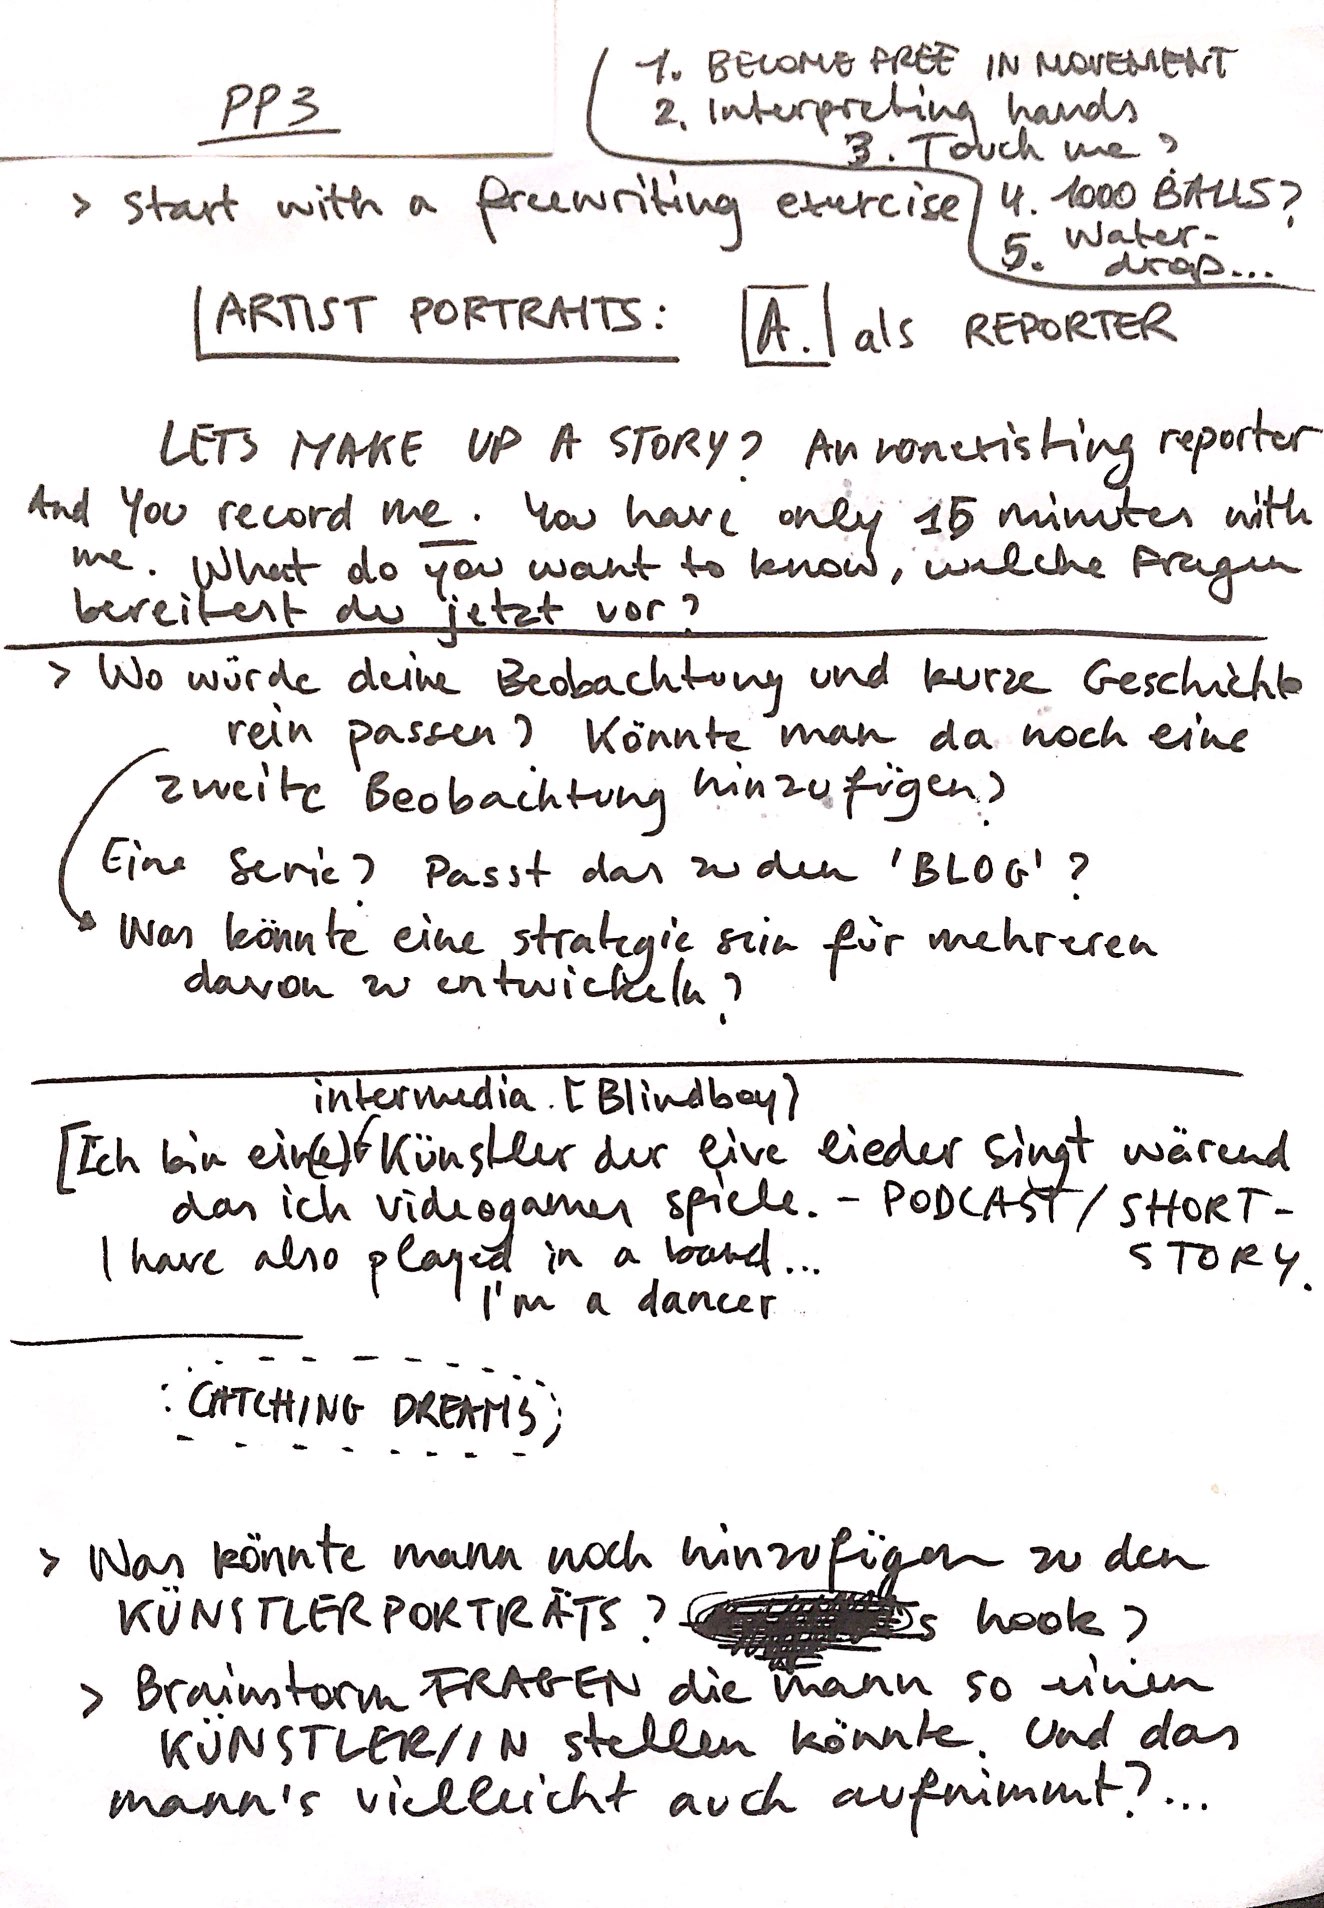 PP3
1. BECOME FREE IN MOVEMENT
2. Interpreting hands
3. Touch me?
4. 1000 BALLS?
5. Water-
drop...
> start with a freewriting exercise
ARTIST PORTRAITS: A. als REPORTER
LETS MAKE UP A STORY? An nonexisting reporter
And You record me. You have only 15 minutes with
me. What do you want to know, welche Fragen
bereitest du jetzt vor?
> Wo würde deine Beobachtung und kurze Geschichte
rein passen? Könnte man da noch eine
zweite Beobachtung hinzufügen?
Eine Serie? Passt das zu den 'BLOG'?
Was könnte eine strategie sein für mehreren
davon zu entwickeln?
intermedia. [Blindboy]
[Ich bin ein(e) Künstler der live lieder singt wärend
das ich videogames spiele. - PODCAST / SHORT-
STORY.
I have also played in a band...
I'm a dancer
CATCHING DREAMS
> Was könnte mann noch hinzufügen zu den
KÜNSTLERPORTRÄTS? s hook?
> Brainstorm FRAGEN die mann so einen
KÜNSTLER/IN stellen könnte. Und das
mann's vielleicht auch aufnimmt?...